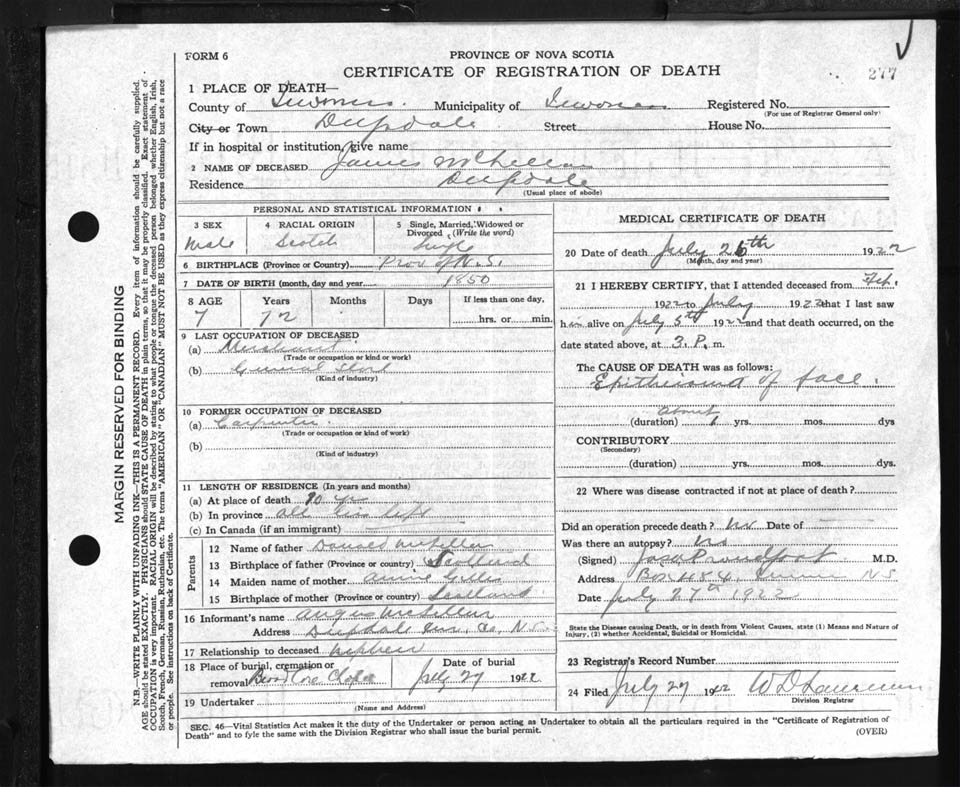 FORM 6
PROVINCE OF NOVA SCOTIA
CERTIFICATE OF REGISTRATION OF DEATH
277
1 PLACE OF DEATH—
County of Inverness. Municipality of Inverness Registered No.
(For use of Registrar General only)
City or Town Deepdale Street House No.
If in hospital or institution, give name
2 NAME OF DECEASED James McLellan
Residence Deepdale
(Usual place of abode)
PERSONAL AND STATISTICAL INFORMATION
3 SEX 4 RACIAL ORIGIN 5 Single, Married, Widowed or Divorced (Write the word)
Male Scotch Single
6 BIRTHPLACE (Province or Country) Prov of N. S.
7 DATE OF BIRTH (month, day and year) 1850
8 AGE Years Months Days If less than one day,
7 72 hrs. or min.
9 LAST OCCUPATION OF DECEASED
(a) Merchant
(Trade or occupation or kind of work)
(b) General Store
(Kind of industry)
10 FORMER OCCUPATION OF DECEASED
(a) Carpenter
(Trade or occupation or kind of work)
(b)
(Kind of industry)
11 LENGTH OF RESIDENCE (In years and months)
(a) At place of death
(b) In province all his life
(c) In Canada (if an immigrant)
Parents
12 Name of father Donald McLellan
13 Birthplace of father (Province or country) Scotland
14 Maiden name of mother Annie Gillis
15 Birthplace of mother (Province or country) Scotland
16 Informant's name Angus McLellan
Address Deepdale Inv. Co. N. S.
17 Relationship to deceased nephew
18 Place of burial, cremation or removal Broad Cove Chapel Date of burial July 27 1922
19 Undertaker
(Name and Address)
MEDICAL CERTIFICATE OF DEATH
20 Date of death July 26th 1922
(Month, day and year)
21 I HEREBY CERTIFY, that I attended deceased from Feb.
1922 to July 1922 that I last saw
him alive on July 5th 1922 and that death occurred, on the
date stated above, at 3. P. m.
The CAUSE OF DEATH was as follows:
Epithelioma of face.
about
(duration) 1 yrs. mos. dys
CONTRIBUTORY
(Secondary)
(duration) yrs. mos. dys.
22 Where was disease contracted if not at place of death?
Did an operation precede death? No Date of
Was there an autopsy? No
(Signed) Proudfoot M.D.
Address Box 484, Inverness N S
Date July 27th 1922
State the Disease causing Death, or in death from Violent Causes, state (1) Means and Nature of
Injury, (2) whether Accidental, Suicidal or Homicidal.
23 Registrar's Record Number
24 Filed July 27 1922 W D Lawrence
Division Registrar
SEC. 46—Vital Statistics Act makes it the duty of the Undertaker or person acting as Undertaker to obtain all the particulars required in the "Certificate of Registration of
Death" and to fyle the same with the Division Registrar who shall issue the burial permit.
(OVER)
MARGIN RESERVED FOR BINDING
N.B.—WRITE PLAINLY WITH UNFADING INK—THIS IS A PERMANENT RECORD. Every item of information should be carefully supplied.
AGE should be stated EXACTLY. PHYSICIANS should STATE CAUSE OF DEATH in plain terms, so that it may be properly classified. Exact statement of
OCCUPATION is very important. RACIAL ORIGIN will be described by stating to what people or tongue the deceased person belonged whether English, Irish,
Scotch, French, German, Russian, Ruthenian, etc. The terms "AMERICAN" OR "CANADIAN" MUST NOT BE USED as they express citizenship but not a race
or people. See instructions on back of Certificate.